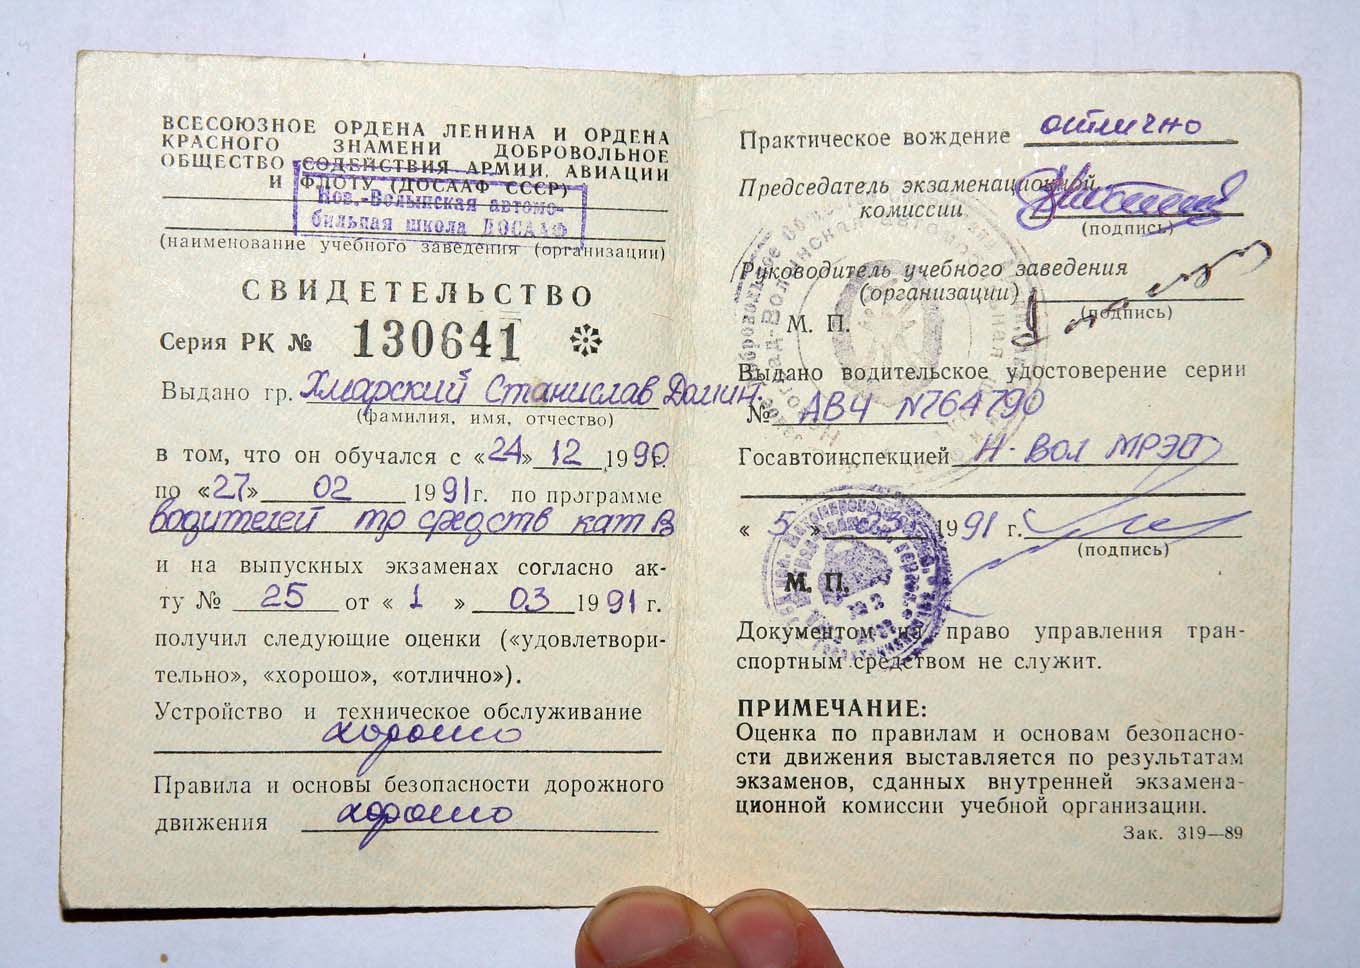 ВСЕСОЮЗНОЕ ОРДЕНА ЛЕНИНА И ОРДЕНА
КРАСНОГО ЗНАМЕНИ ДОБРОВОЛЬНОЕ
ОБЩЕСТВО СОДЕЙСТВИЯ АРМИИ, АВИАЦИИ
И ФЛОТУ (ДОСААФ СССР)
Нов.-Волынская автомо-
бильная школа ДОСААФ
(наименование учебного заведения (организации)
СВИДЕТЕЛЬСТВО
Серия РК № 130641
Выдано гр. Хмарский Станислав Домин.
(фамилия, имя, отчество)
в том, что он обучался с «24» 12 1990г.
по «27» 02 1991г. по программе
водителей тр средств кат В
и на выпускных экзаменах согласно ак-
ту № 25 от «1» 03 1991 г.
получил следующие оценки («удовлетвори-
тельно», «хорошо», «отлично»).
Устройство и техническое обслуживание
хорошо
Правила и основы безопасности дорожного
движения хорошо
Практическое вождение отлично
Председатель экзаменационной
комиссии
(подпись)
Руководитель учебного заведения
(организации)
(подпись)
М. П.
Выдано водительское удостоверение серии
№ АВЧ N764790
Госавтоинспекцией Н-Вол МРЭО
«5» 03 1991 г.
(подпись)
М. П.
Документом на право управления тран-
спортным средством не служит.
ПРИМЕЧАНИЕ:
Оценка по правилам и основам безопасно-
сти движения выставляется по результатам
экзаменов, сданных внутренней экзамена-
ционной комиссии учебной организации.
Зак. 319—89